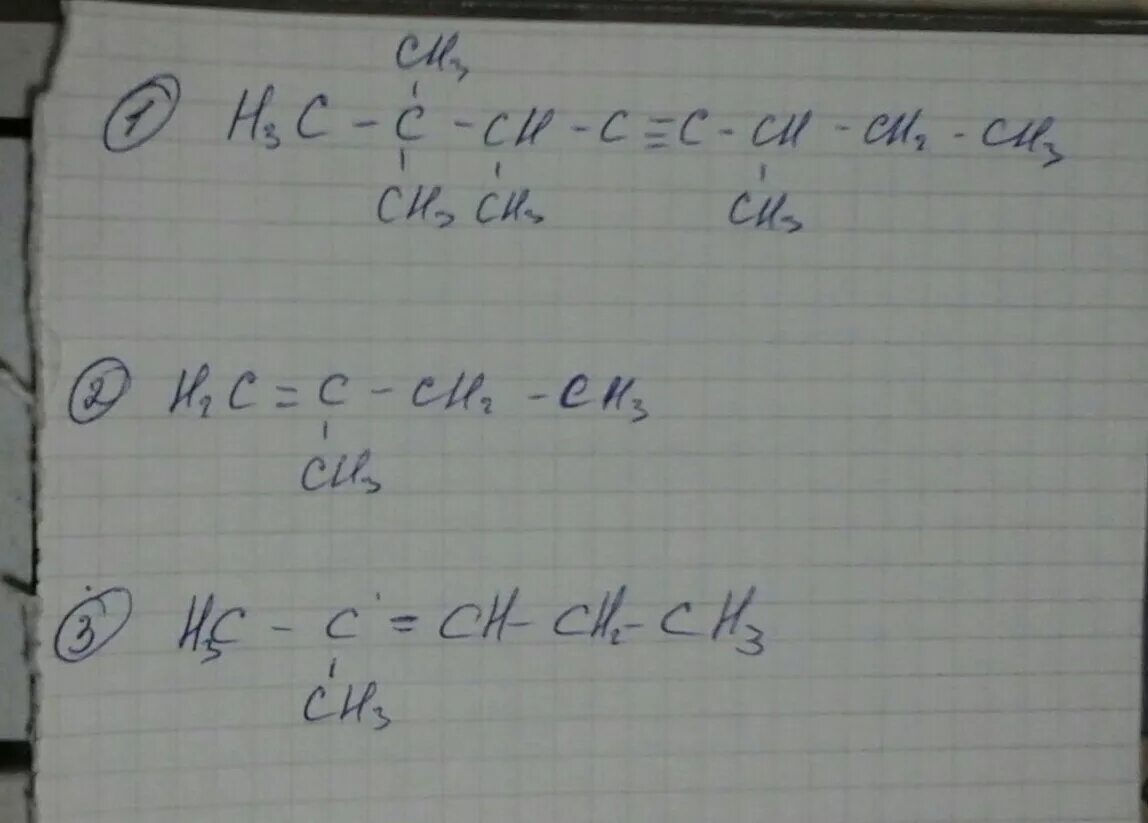 CH₃
① H₃C - C - CH - C ≡ C - CH - CH₂ - CH₃
CH₃ CH₃ CH₃
② H₂C = C - CH₂ - CH₃
CH₃
③ H₃C - C = CH - CH₂ - CH₃
CH₃